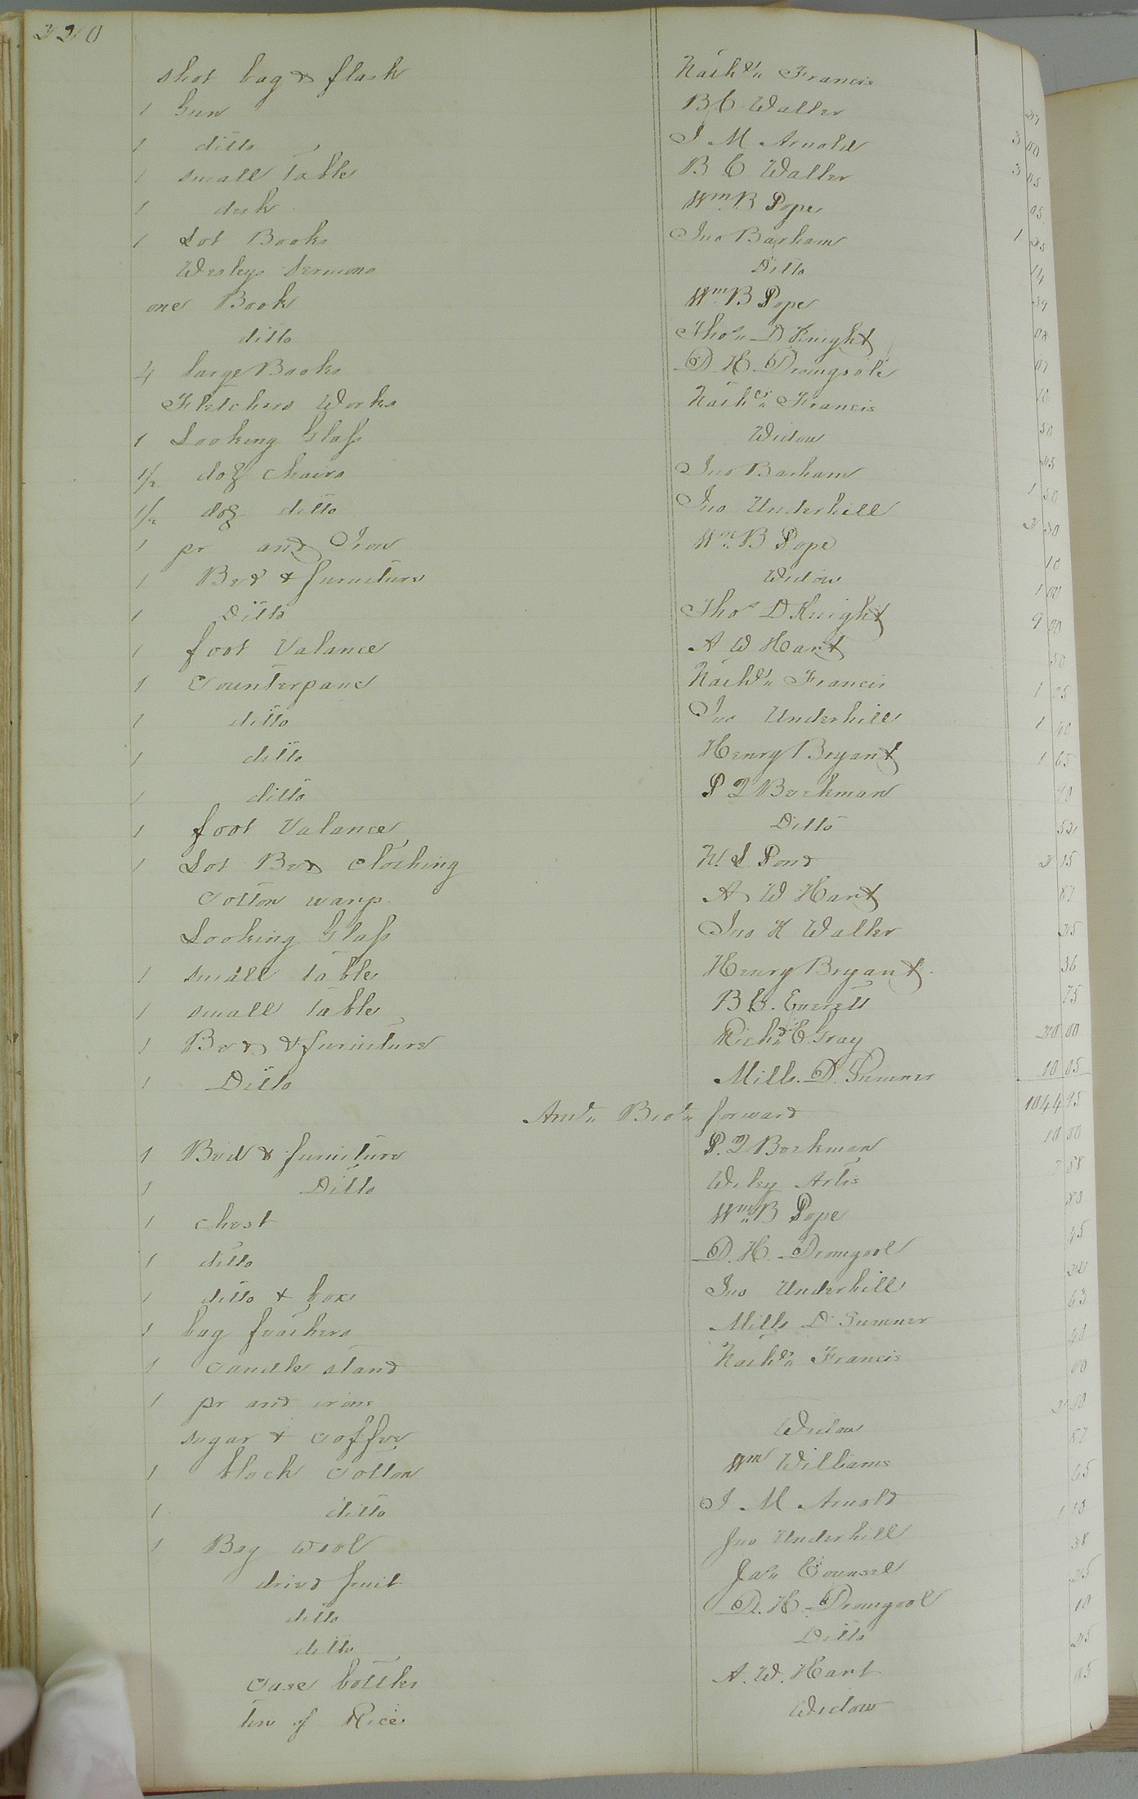 220
shot bag & flask Nath'l Francis
1 Gun B C Waller 25
1 ditto J M Arnold 3 00
1 small table B C Waller 3 05
1 desk Wm B Pope 05
1 Lot Books Jno Barham 1 25
Wesleys Sermons Ditto
one Book Wm B Pope
ditto Thos D Knight
4 large Books D. H. Dromgoole
Fletchers Works Nath'l Francis
1 Looking Glass Widow 50
1/2 doz chairs Jno Barham
1/2 doz ditto Jno Underhill 1 50
1 pr and Iron Wm B Pope 2 50
1 Bed & furniture Widow 10
1 Ditto Thos D Knight 1 00
1 foot Valance A W Hart 9 00
1 Counterpane Nath'l Francis 50
1 ditto Jno Underhill 1 05
1 ditto Henry Bryant 1 40
1 ditto P I Borkman 1 65
1 foot Valance Ditto
1 Lot Bed Clothing W S Pond 2 15
Cotton warp A W Hart
Looking Glass Jno H Waller 25
1 small table Henry Bryant 36
1 small table B C. Everett 75
1 Bed & furniture Richd E Gray 20 00
1 Ditto Mills. D. Sumner 10 05
Amt Brot forward 1044 95
1 Bed & furniture P. I Borkman
1 Ditto Wiley Artis
1 chest Wm B Pope
1 ditto D. H. Dromgool 45
1 ditto & box Jno Underhill
1 bag feathers Mills D Sumner 63
1 candle stand Nath'l Francis
1 pr and irons
sugar & Coffee Widow
1 block Cotton Wm Williams
1 ditto J M Arnold 65
1 Bag wool Jno Underhill
dried fruit Jas Councel
ditto D. H. Dromgool
ditto Ditto 10
case bottles A. W. Hart 25
tin of Rice Widow